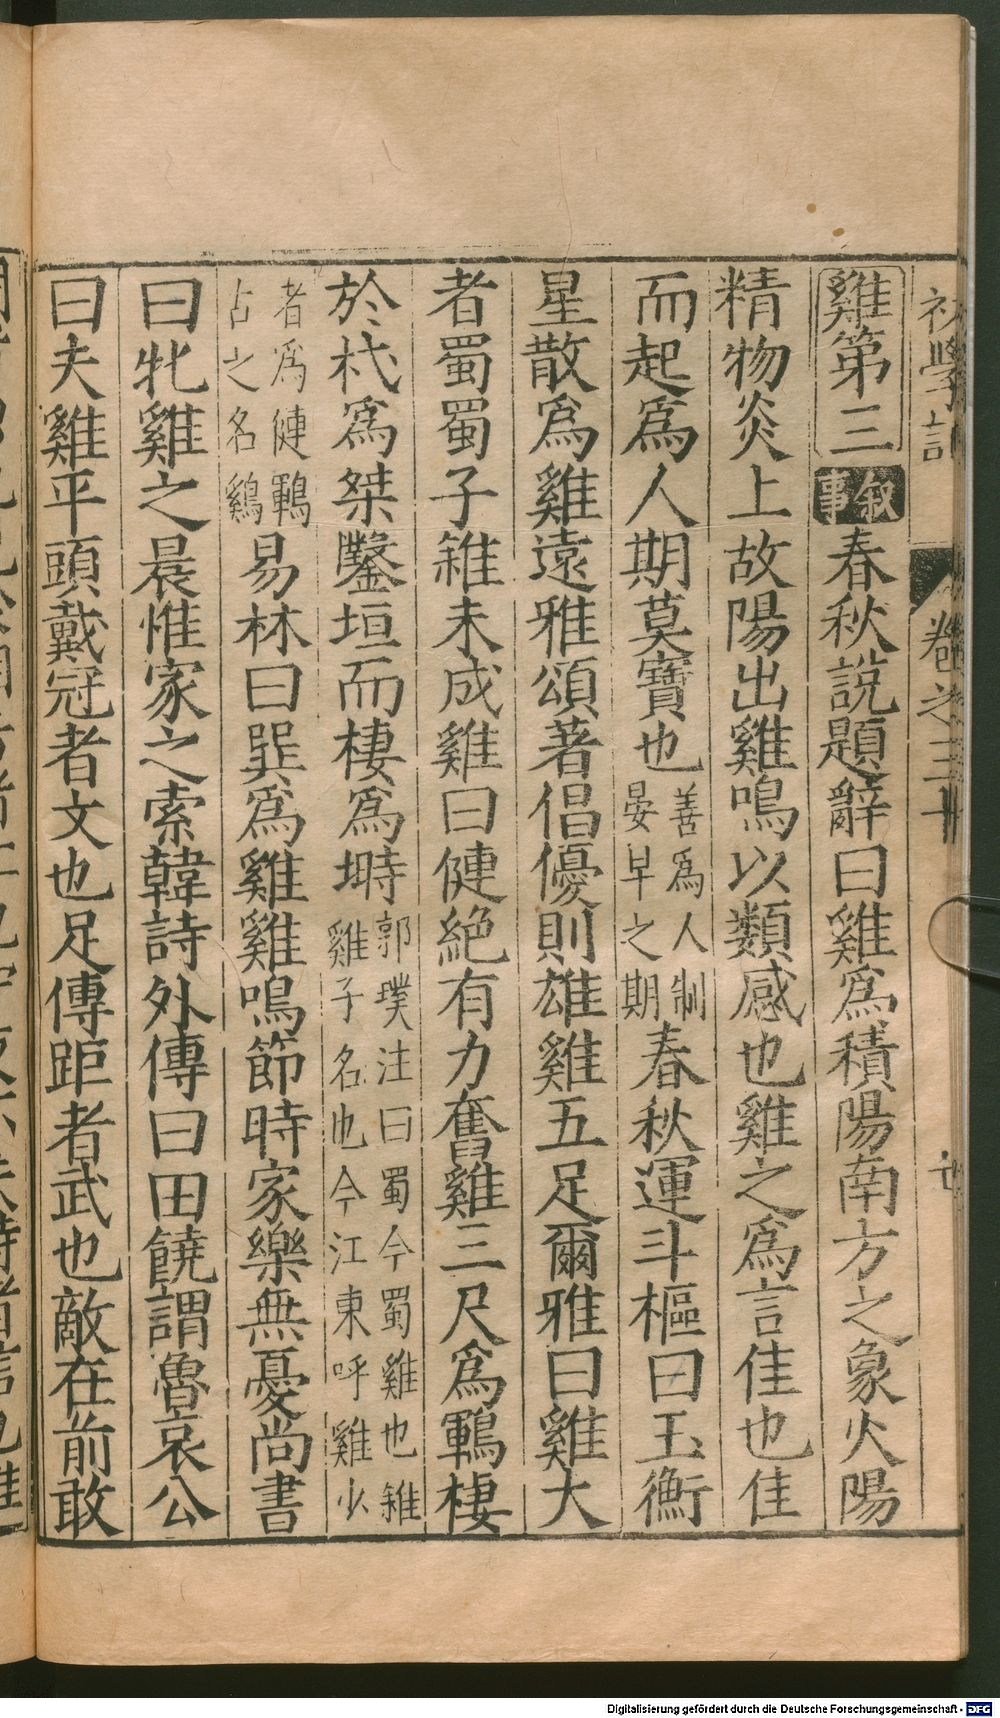 初學記 卷之三十
雞第三 叙事 春秋說題辭曰雞爲積陽南方之象火陽
精物炎上故陽出雞鳴以類感也雞之爲言佳也佳
而起爲人期莫寶也 善爲人制晏早之期 春秋運斗樞曰玉衡
星散爲雞遠雅頌著倡優則雄雞五足爾雅曰雞大
者蜀蜀子雓未成雞曰僆絕有力奮雞三尺爲鶤棲
於杙爲桀鑿垣而棲爲塒 郭璞注曰蜀今蜀雞也雓雞子名也今江東呼雞少
者爲僆鶤占之名鷄 易林曰巽爲雞雞鳴節時家樂無憂尚書
曰牝雞之晨惟家之索韓詩外傳曰田饒謂魯哀公
曰夫雞平頭戴冠者文也足傳距者武也敵在前敢
Digitalisierung gefördert durch die Deutsche Forschungsgemeinschaft - DFG